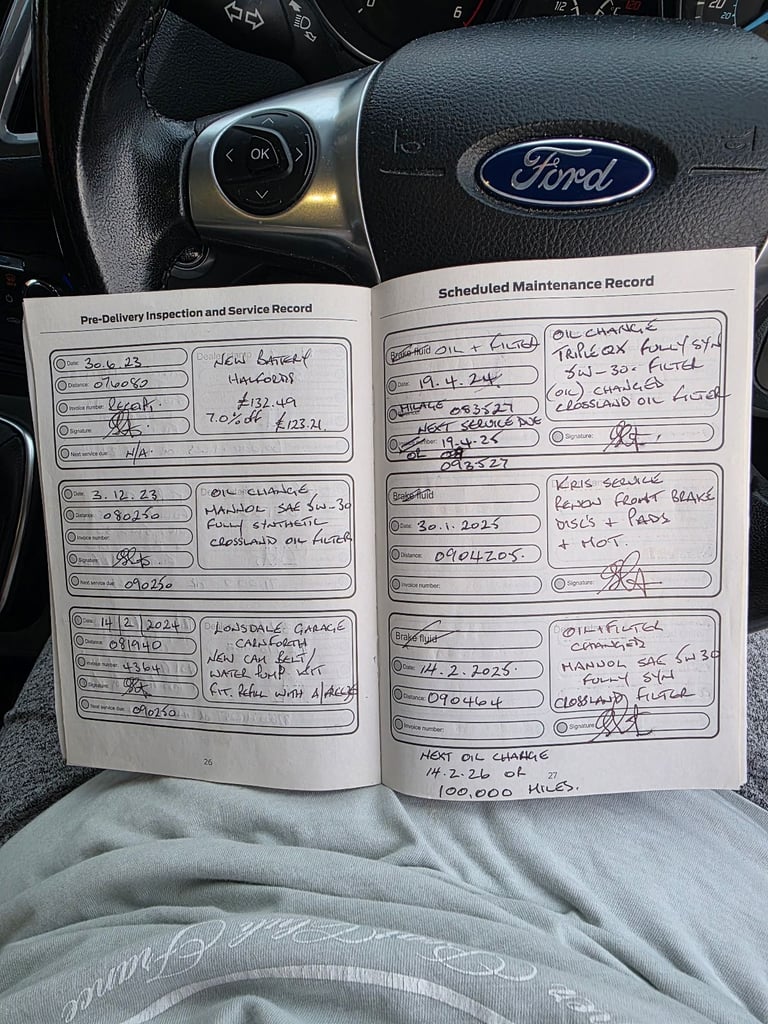 OK
Ford
6
Pre-Delivery Inspection and Service Record
Date: 30.6.23
Distance: 076080
Invoice number:
Signature:
Next service due: N/A
NEW BATTERY
HALFORDS
£132.49
7.0% off £123.21
Date: 3.12.23
Distance: 080250
Invoice number:
Signature:
Next service due: 090250
OIL CHANGE
MANNOL SAE 5W-30
FULLY SYNTHETIC
CROSSLAND OIL FILTER
Date: 14/2/2024
Distance: 081940
Invoice number: 4364
Signature:
Next service due: 090250
LONSDALE GARAGE
CARNFORTH
NEW CAM BELT/
WATER PUMP KIT
FIT. REFILL WITH A/FREEZE
26
Scheduled Maintenance Record
Brake fluid OIL + FILTER
Date: 19.4.24
MILAGE 083527
NEXT SERVICE DUE
19.4.25
OR
093527
OIL CHANGE
TRIPLE QX FULLY SYN
5W-30. FILTER
(OIL) CHANGED
CROSSLAND OIL FILTER
Signature:
Brake fluid
Date: 30.1.2025
Distance: 0904205.
Invoice number:
KRIS SERVICE
RENEW FRONT BRAKE
DISC'S + PADS
+ MOT.
Signature:
Brake fluid
Date: 14.2.2025.
Distance: 090464
Invoice number:
OIL+FILTER
CHANGED
MANNOL SAE 5W30
FULLY SYN
CROSSLAND FILTER
Signature:
NEXT OIL CHANGE
14.2.26 OR
100,000 MILES.
27
France